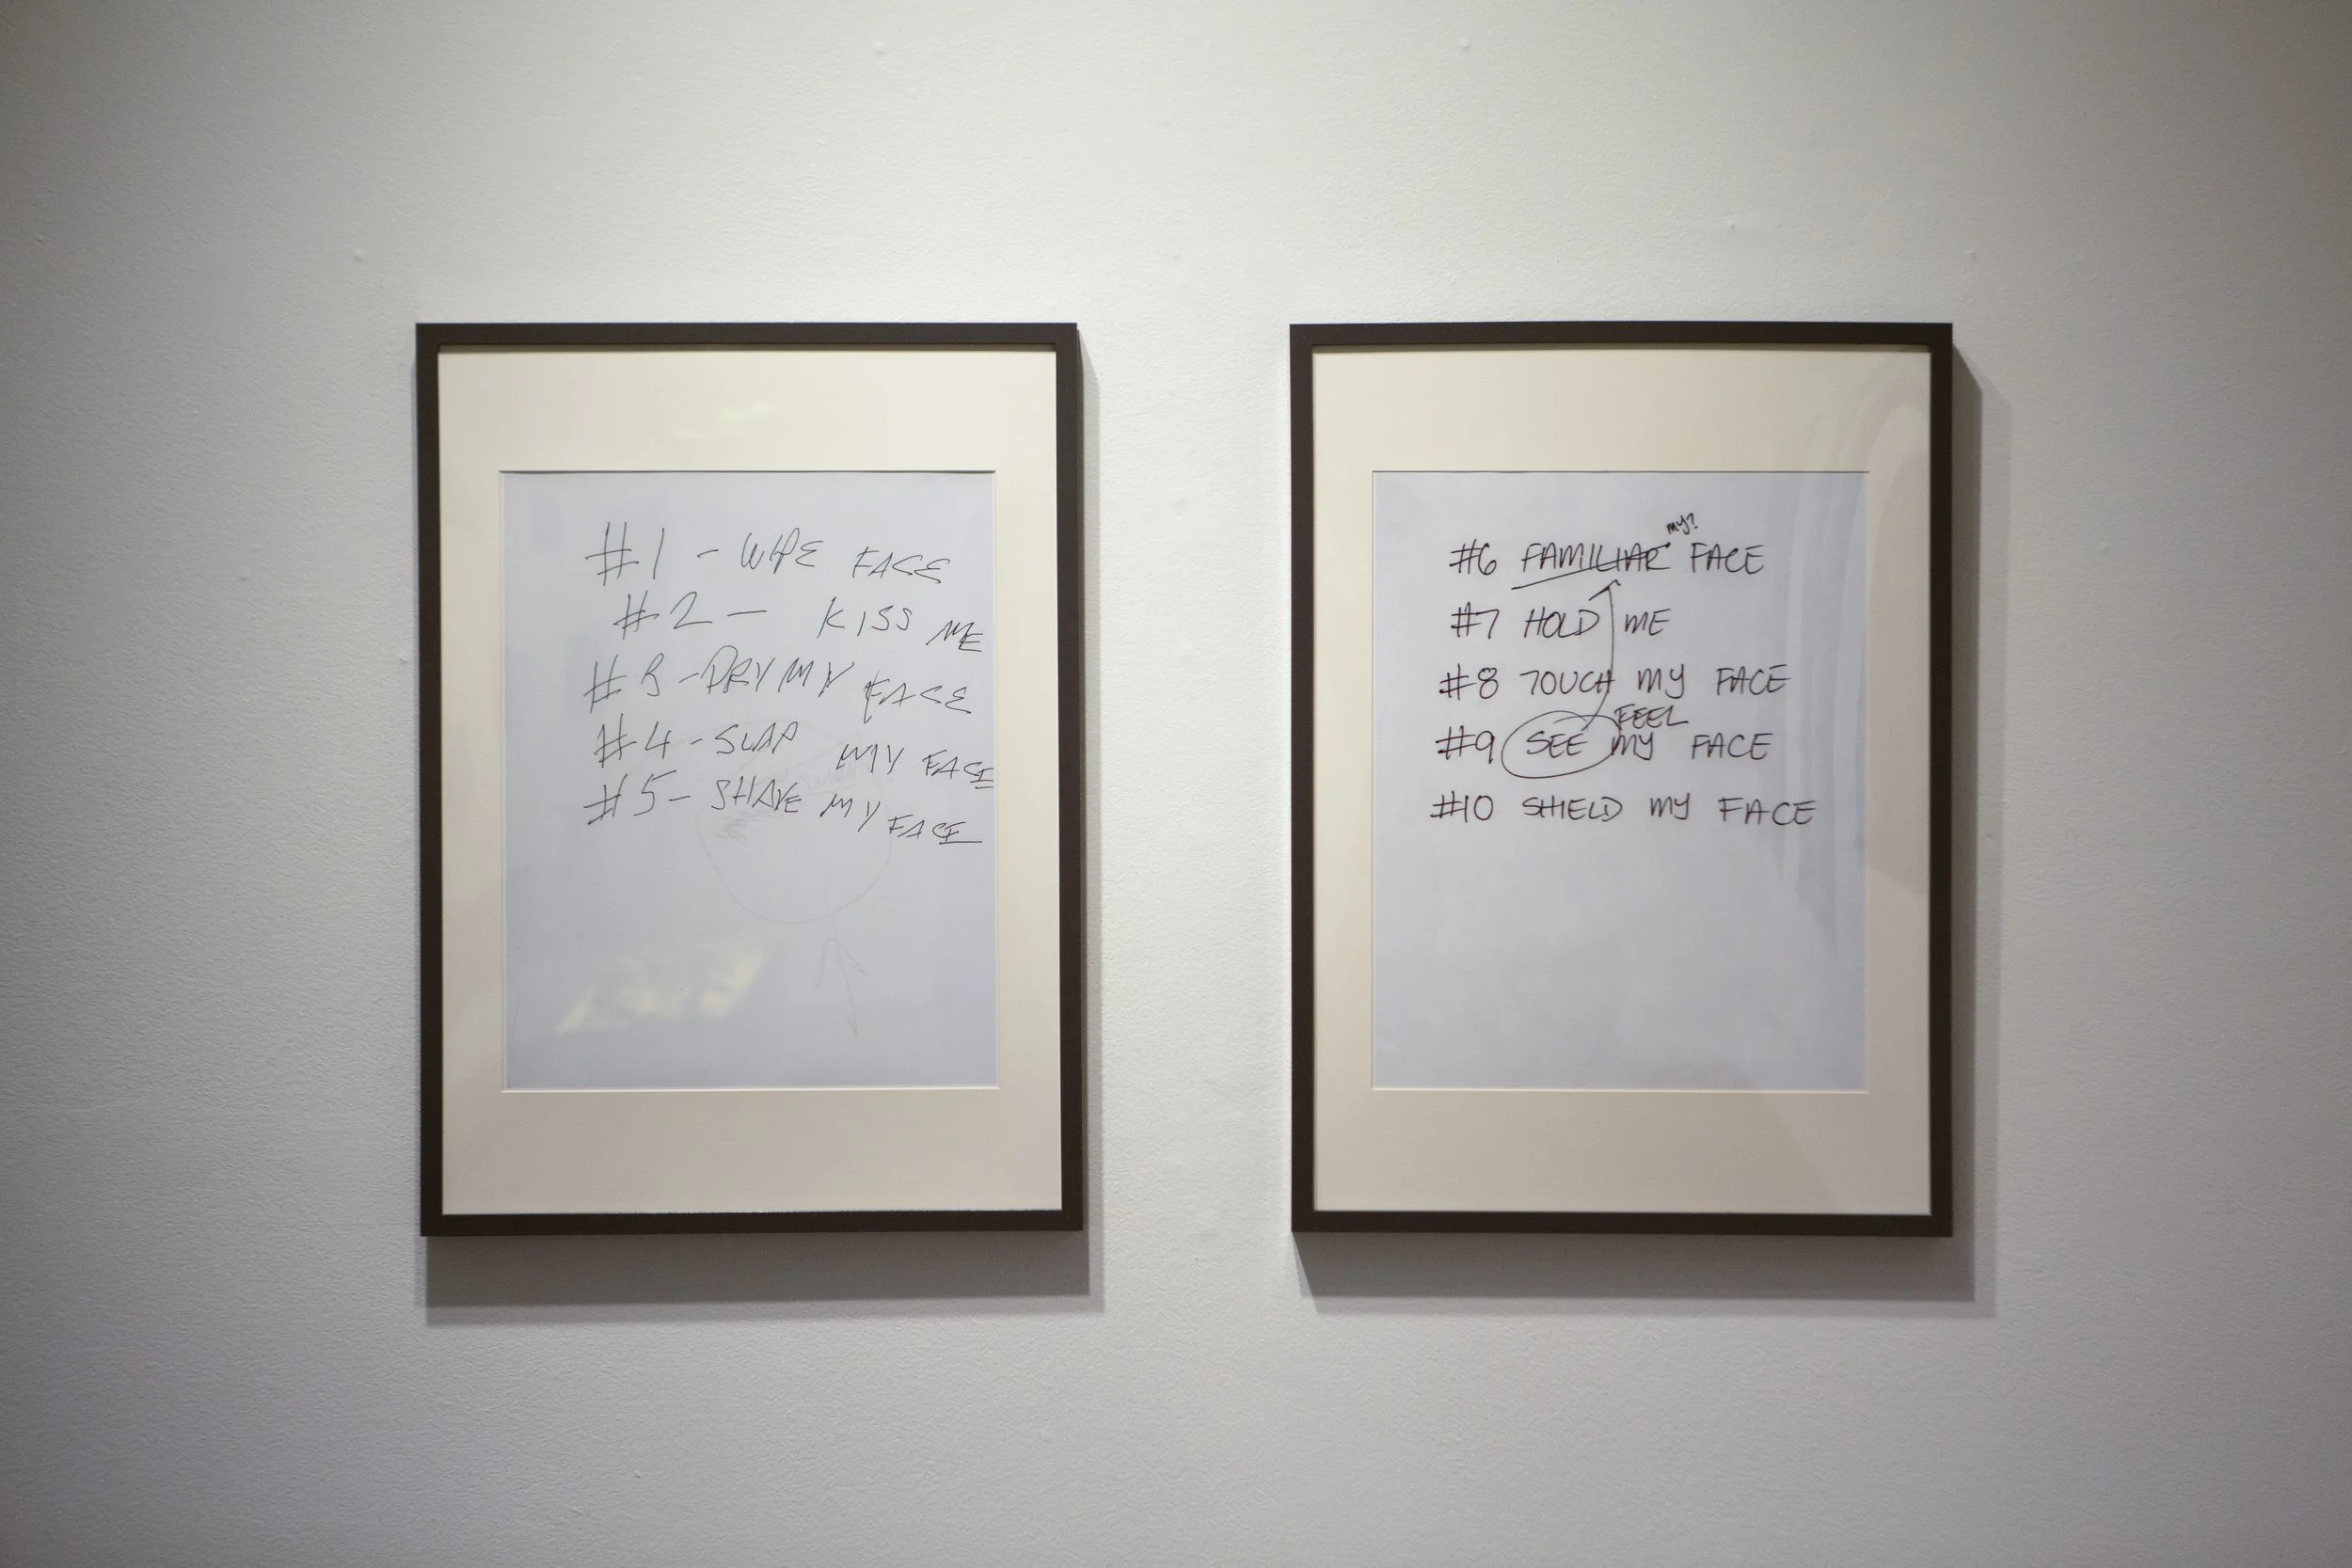 #1 - WIPE FACE
#2 - KISS ME
#3 - DRY MY FACE
#4 - SLAP MY FACE
#5 - SHAVE MY FACE
my?
#6 FAMILIAR FACE
#7 HOLD ME
#8 TOUCH MY FACE
FEEL
#9 SEE MY FACE
#10 SHIELD MY FACE